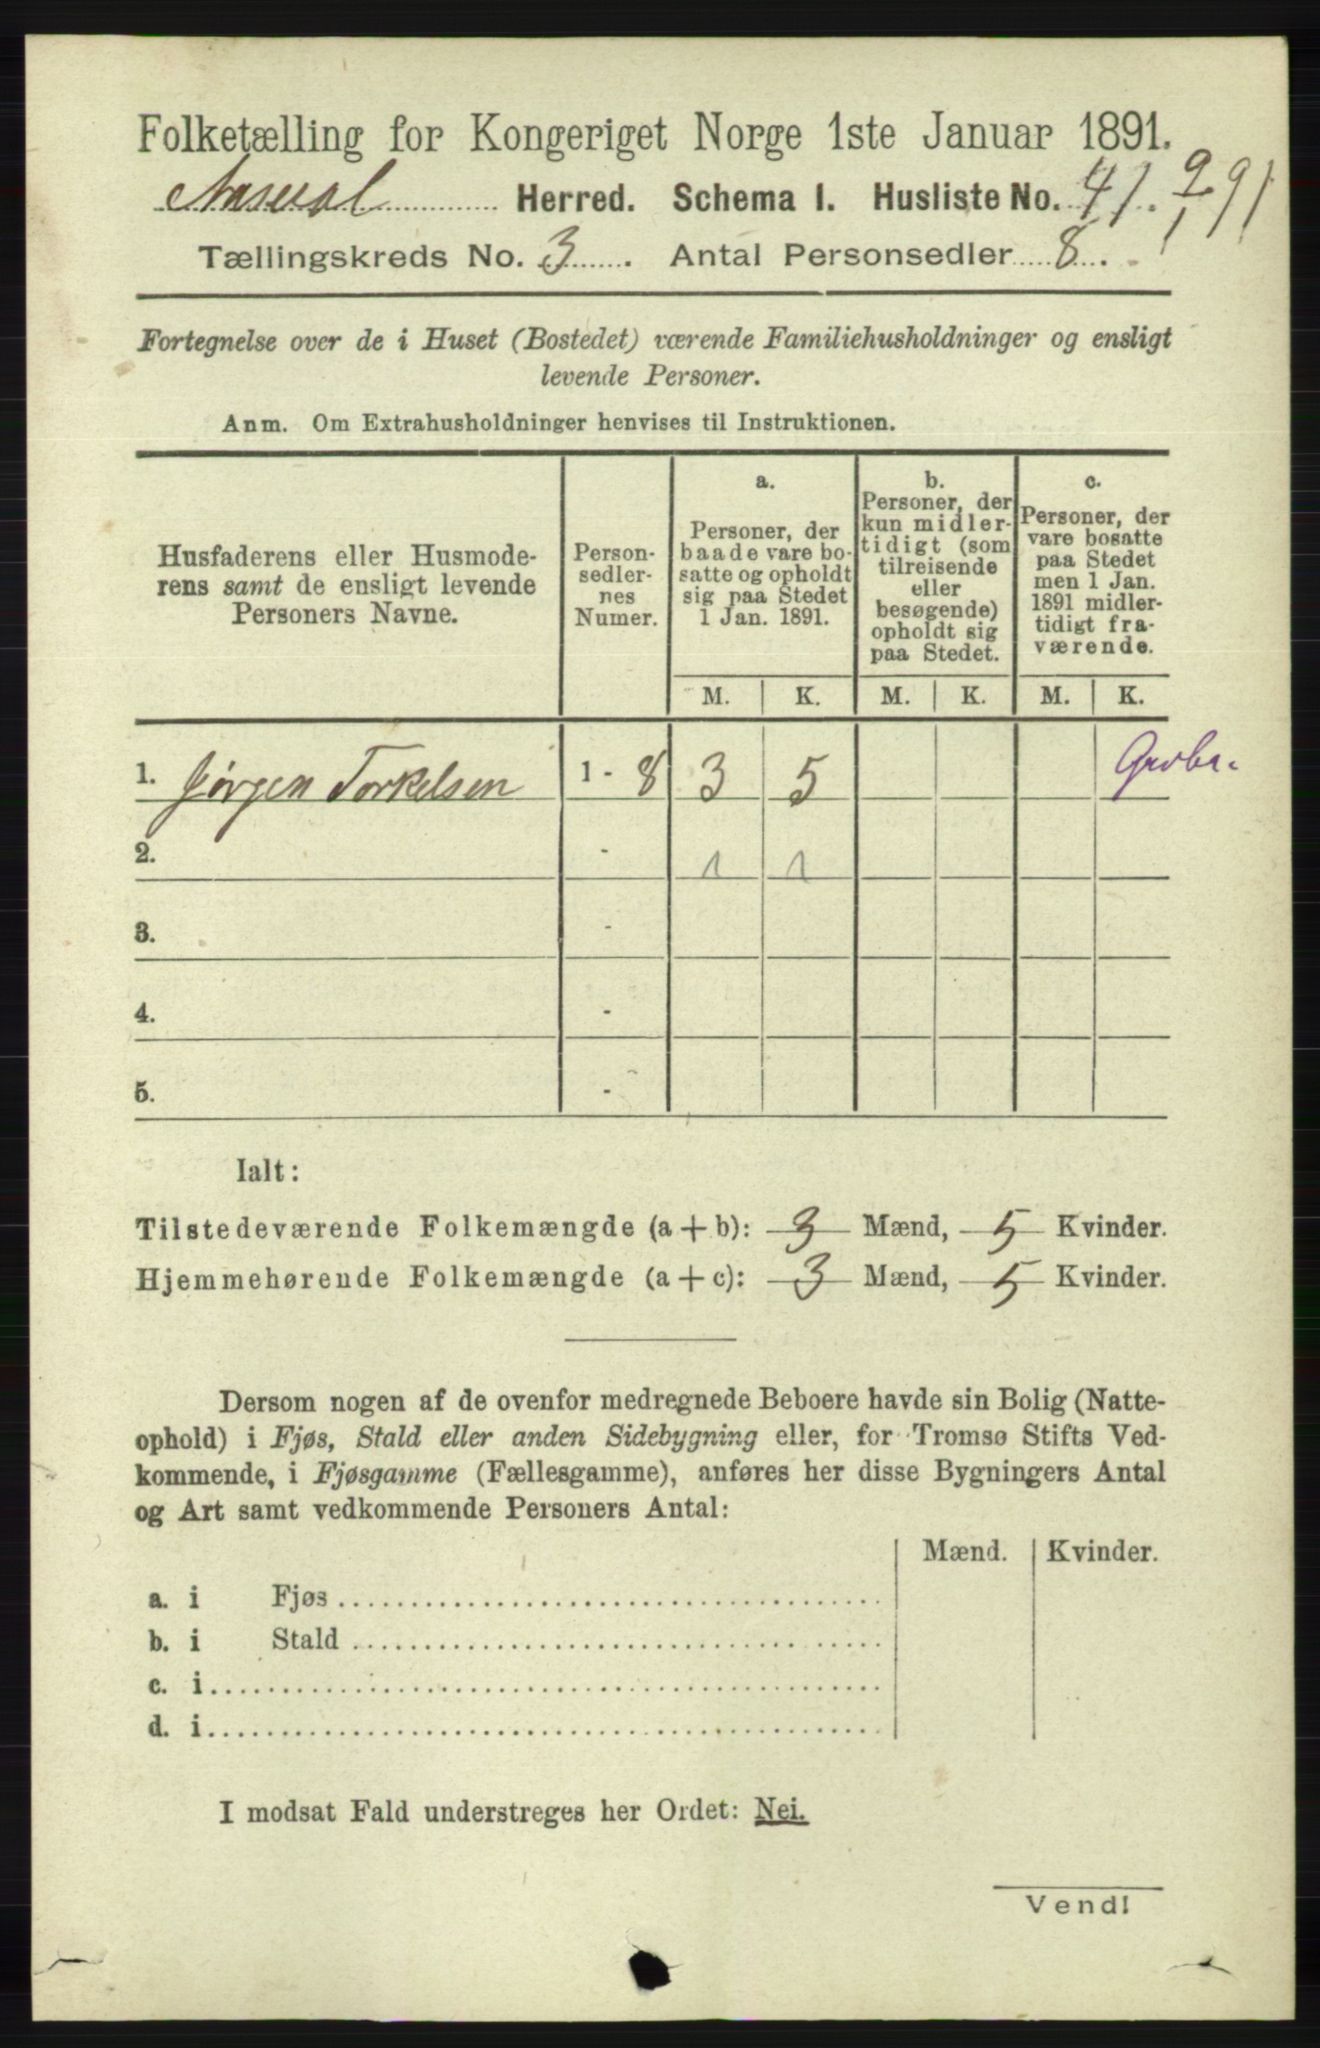 Folketælling for Kongeriget Norge 1ste Januar 1891.
Aaseral Herred. Schema 1. Husliste No. 41.
Tællingskreds No. 3. Antal Personsedler 8.
Fortegnelse over de i Huset (Bostedet) værende Familiehusholdninger og ensligt
levende Personer.
Anm. Om Extrahusholdninger henvises til Instruktionen.
Husfaderens eller Husmode-
rens samt de ensligt levende
Personers Navne.
Person-
sedler-
nes
Numer.
a.
Personer, der
baade vare bo-
satte og opholdt
sig paa Stedet
1 Jan. 1891.
b.
Personer, der
kun midler-
tidigt (som
tilreisende
eller
besøgende)
opholdt sig
paa Stedet.
c.
Personer, der
vare bosatte
paa Stedet
men 1 Jan.
1891 midler-
tidigt fra-
værende.
M. K. M. K. M. K.
1. Jørgen Torkelsen 1 - 8 3 5
2. - 1 1
3. -
4. -
5. -
Ialt:
Tilstedeværende Folkemængde (a + b): 3 Mænd, 5 Kvinder.
Hjemmehørende Folkemængde (a + c): 3 Mænd, 5 Kvinder.
Dersom nogen af de ovenfor medregnede Beboere havde sin Bolig (Natte-
ophold) i Fjøs, Stald eller anden Sidebygning eller, for Tromsø Stifts Ved-
kommende, i Fjøsgamme (Fællesgamme), anføres her disse Bygningers Antal
og Art samt vedkommende Personers Antal:
Mænd. Kvinder.
a. i Fjøs
b. i Stald
c. i
d. i
I modsat Fald understreges her Ordet: Nei.
Vend!